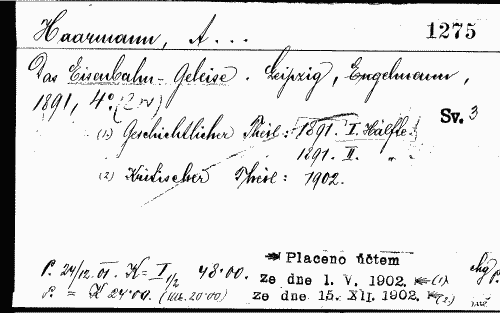 Haarmann, A... 1275
Das Eisenbahn-Geleise. Leipzig, Engelmann,
1891, 4° (2 sv) Sv. 3
(1) Geschichtlicher Theil: 1891. I. Hälfte.
1891. II. " "
(2) Kritischer Theil: 1902.
P. 24/12. 01. K= I 1/2 48·00.
P. = K 24·00. (Mk. 20·00)
Placeno účtem
ze dne 1. V. 1902. (1)
ze dne 15. XII. 1902. (2)